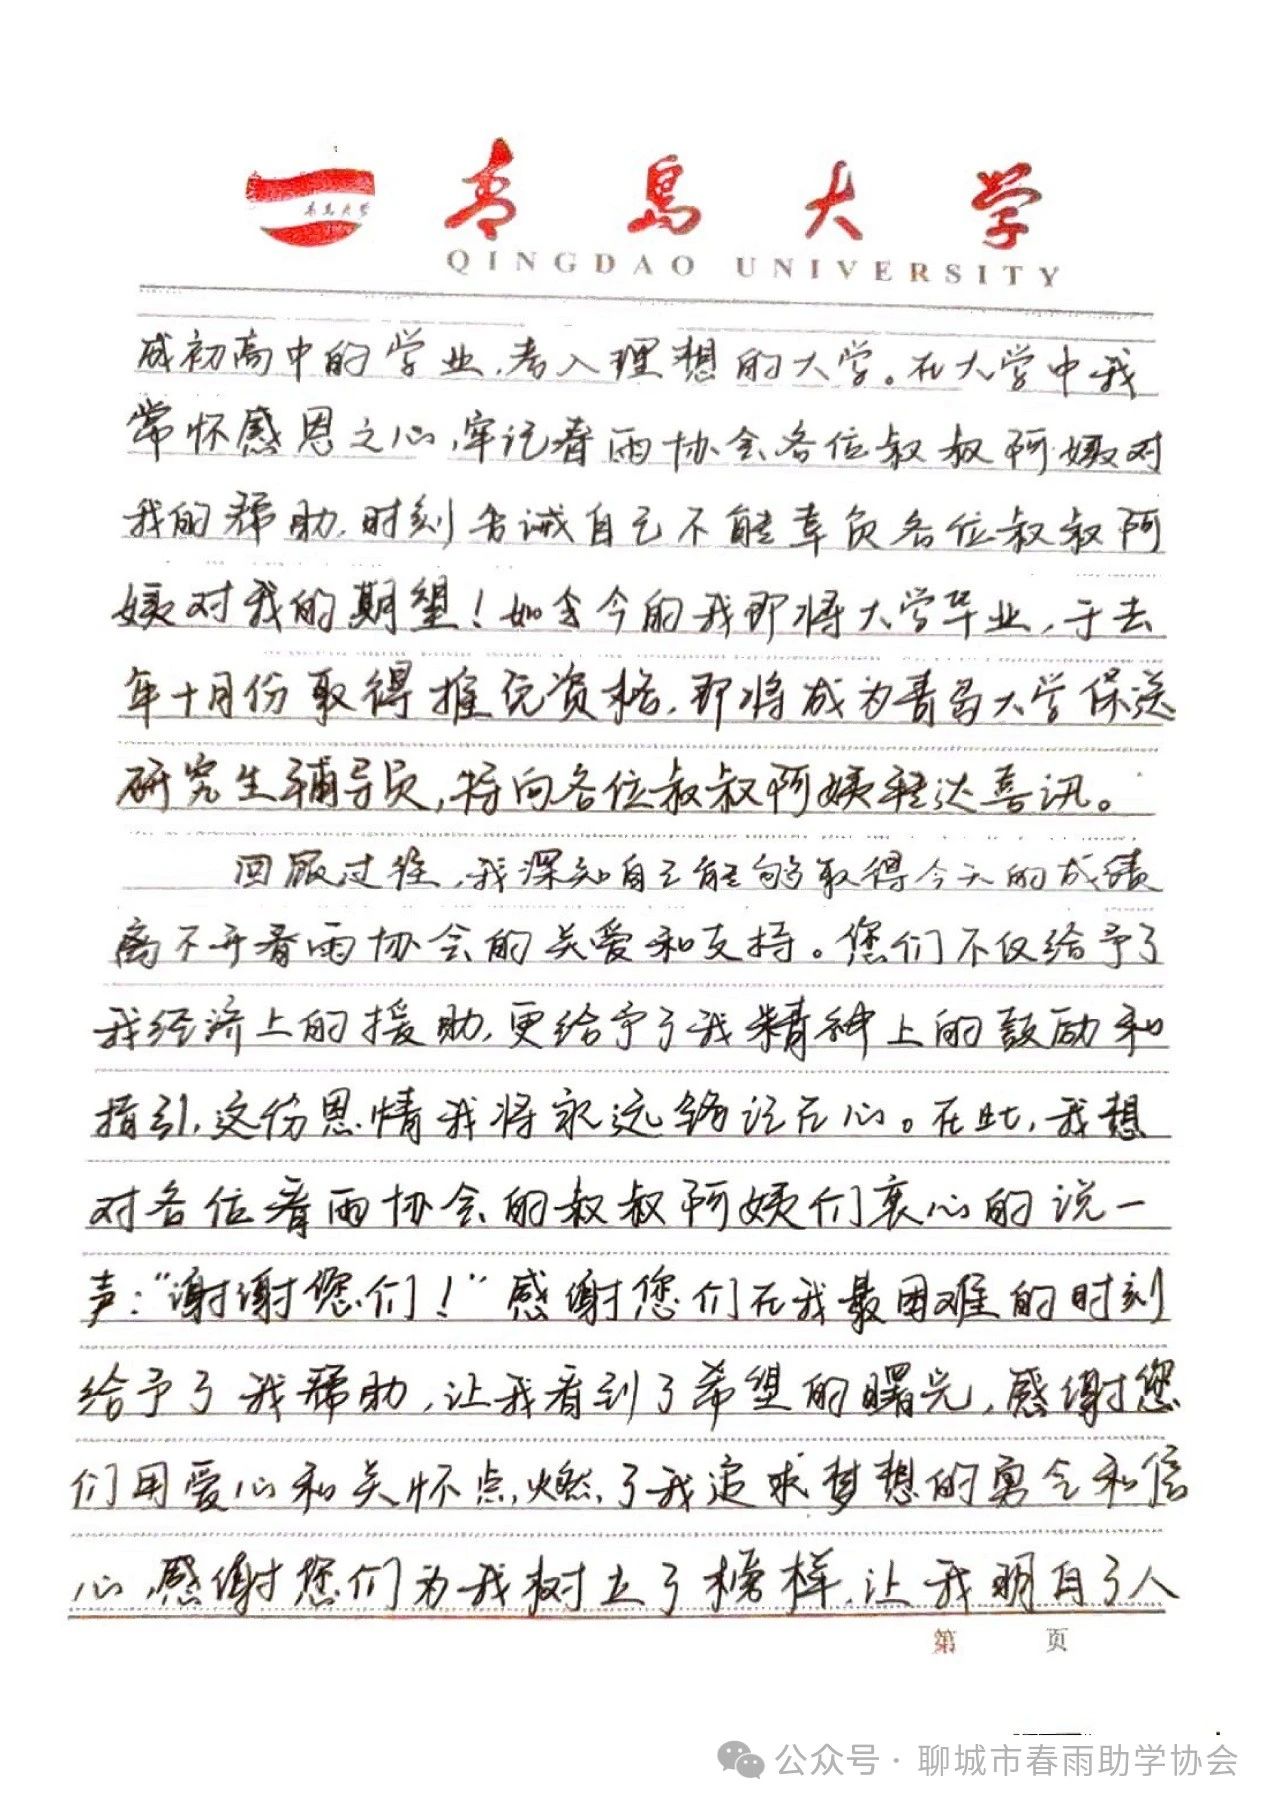 青岛大学
青岛大学
QINGDAO UNIVERSITY
成初高中的学业,考入理想的大学。在大学中我
常怀感恩之心,牢记春雨协会各位叔叔阿姨对
我的帮助,时刻告诫自己不能辜负各位叔叔阿
姨对我的期望!如今的我即将大学毕业,于去
年十月份取得推免资格,即将成为青岛大学保送
研究生辅导员,特向各位叔叔阿姨转达喜讯。
回顾过往,我深知自己能够取得今天的成绩
离不开春雨协会的关爱和支持。您们不仅给予了
我经济上的援助,更给予了我精神上的鼓励和
指引,这份恩情我将永远铭记在心。在此,我想
对各位春雨协会的叔叔阿姨们衷心的说一
声:“谢谢您们!”感谢您们在我最困难的时刻
给予了我帮助,让我看到了希望的曙光,感谢您
们用爱心和关怀点燃了我追求梦想的勇气和信
心,感谢您们为我树立了榜样,让我明白了人
第 页
公众号·聊城市春雨助学协会